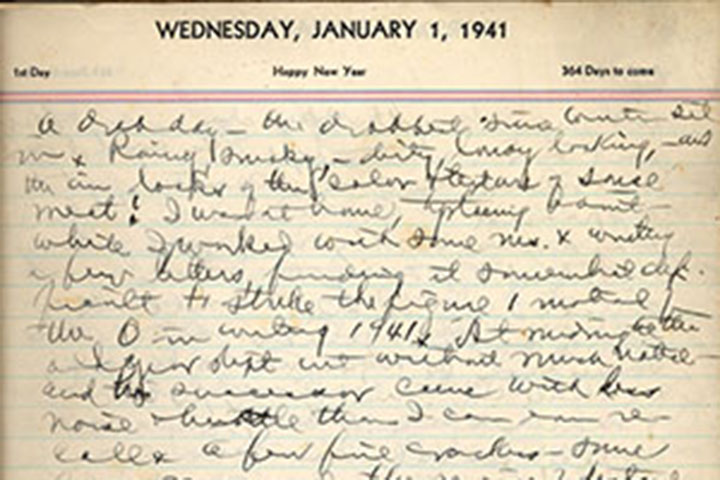 WEDNESDAY, JANUARY 1, 1941
1st Day Happy New Year 364 Days to come
A drab day – the drabbest since winter set
in x Rainy, smoky, – dirty, looking, – and
the looks of the color & texture of
meat! I was at home,
while I worked with some ms. x writing
a few letters, finding it somewhat dif-
ficult to strike the figure 1 instead of
the 0 in writing 1941x At midnight the
old year slept out without much notice –
and successor came with less
noise & bustle than I can even re-
callx a few fire crackers – some